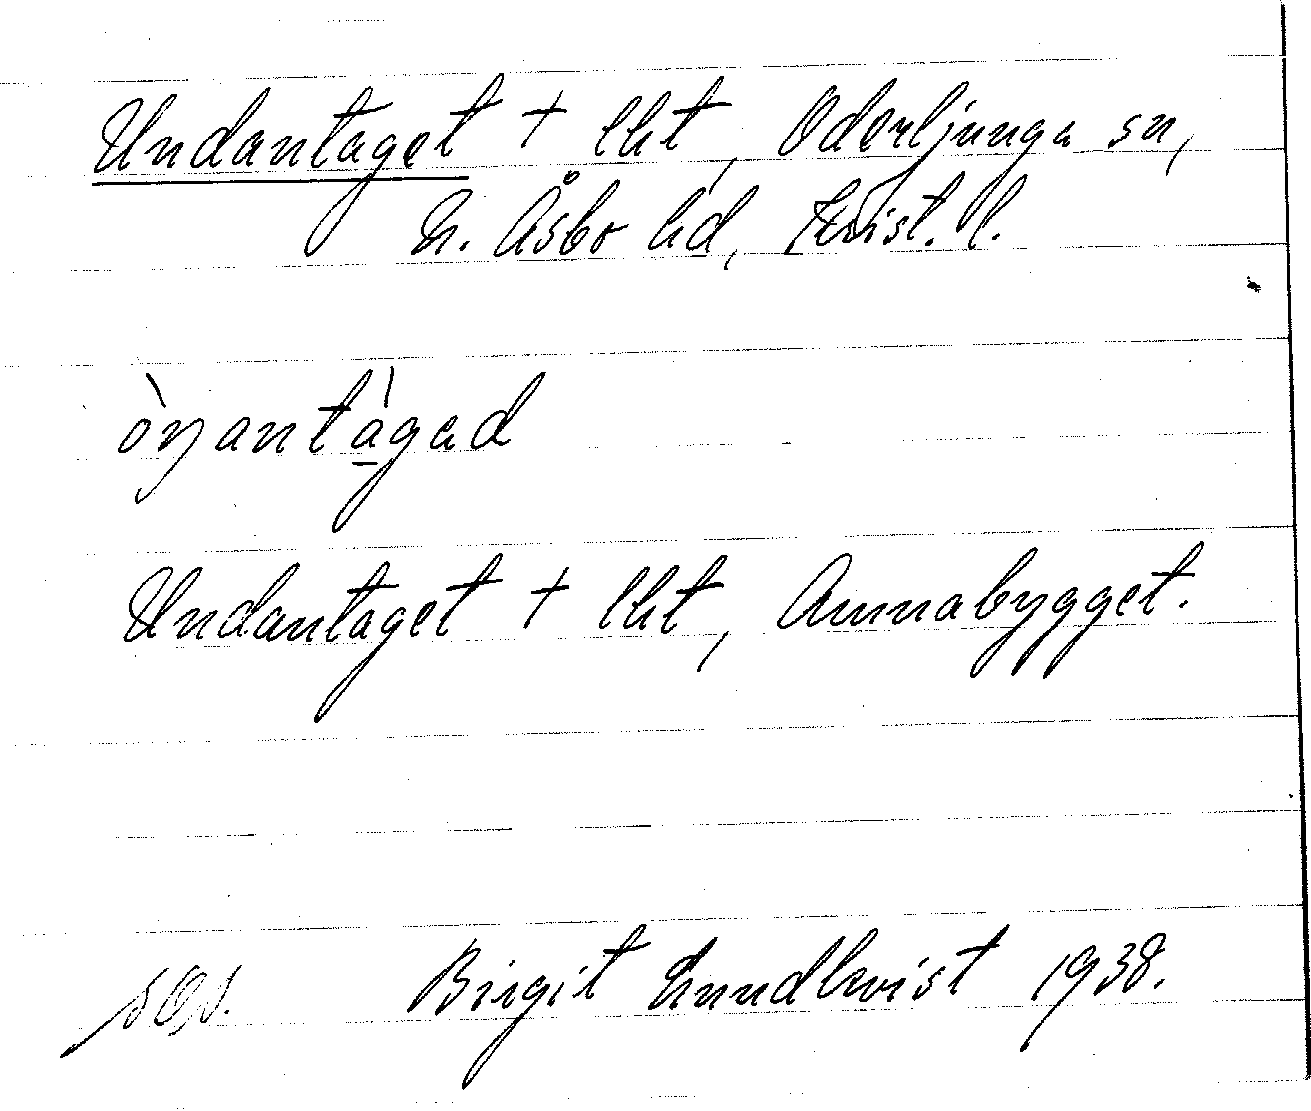 Undantaget + lht, Oderljunga sn,
N. Åsbo hd, Krist. l.
òŋantàgad
Undantaget + lht, Annabygget.
Birgit Lundkvist 1938.